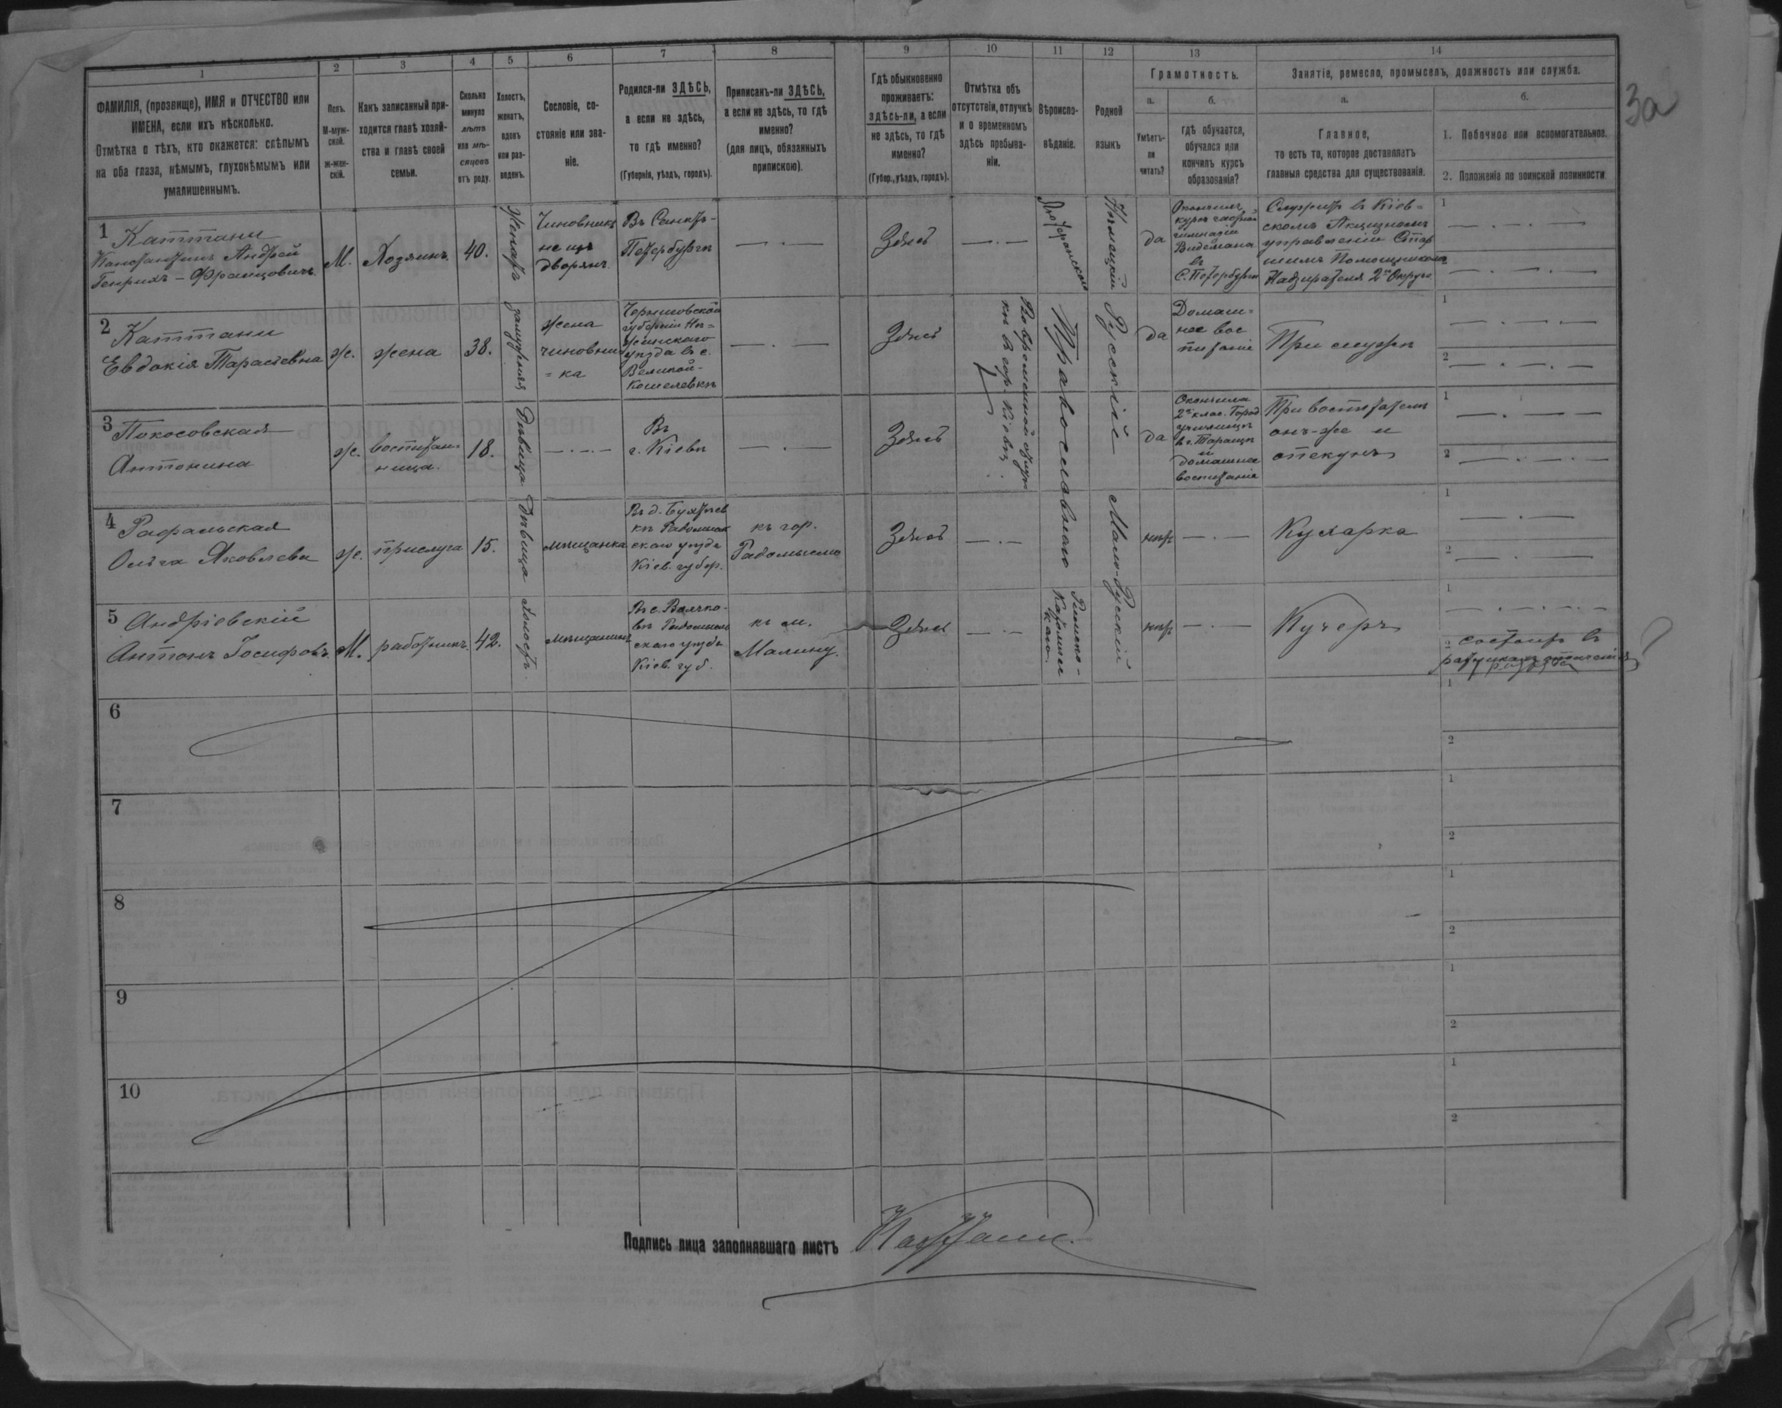 1 2 3 4 5 6 7 8 9 10 11 12 13 14
ФАМИЛІЯ, (прозвище), ИМЯ и ОТЧЕСТВО или
ИМЕНА, если ихъ нѣсколько.
Отмѣтка о тѣхъ, кто окажется: слѣпымъ
на оба глаза, нѣмымъ, глухонѣмымъ или
умалишеннымъ.
Полъ.
М-муж-
ской.
Ж-жен-
скій.
Какъ записанный при-
ходится главѣ хозяй-
ства и главѣ своей
семьи.
Сколько
минуло
лѣтъ
или мѣ-
сяцевъ
отъ роду.
Холостъ,
женатъ,
вдовъ
или раз-
веденъ.
Сословіе, со-
стояніе или зва-
ніе.
Родился-ли ЗДѢСЬ,
а если не здѣсь,
то гдѣ именно?
(Губернія, уѣздъ, городъ).
Приписанъ-ли ЗДѢСЬ,
а если не здѣсь, то гдѣ
именно?
(для лицъ, обязанныхъ
припискою).
Гдѣ обыкновенно
проживаетъ:
здѣсь-ли, а если
не здѣсь, то гдѣ
именно?
(Губер., уѣздъ, городъ).
Отмѣтка объ
отсутствіи, отлучкѣ
и о временномъ
здѣсь пребыва-
ніи.
Вѣроиспо-
вѣданіе.
Родной
языкъ
Грамотность.
а.
Умѣетъ-
ли
читать?
б.
гдѣ обучается,
обучался или
кончилъ курсъ
образованія?
Занятіе, ремесло, промыселъ, должность или служба.
а.
Главное,
то есть то, которое доставляетъ
главныя средства для существованія.
б.
1. Побочное или вспомогательное.
2. Положеніе по воинской повинности
3а
1
Каттани
Константинъ Андрей
Генрихъ - Францовичъ
М.
Хозяинъ
40.
Женатъ
Чиновникъ
не изъ
дворянъ
Въ Санктъ-
Петербургѣ
Здѣсь
Нѣмецкій
да
Окончилъ
курсъ
гимназіи
Видемана
въ
С.Петербургѣ
Служитъ въ Кіев-
скомъ Акцизномъ
управленіи Стар
шимъ Помощникомъ
Надзирателя 2го Округа
1
2
2
Каттани
Евдокія Тарасьевна
ж.
жена
38.
замужняя
жена
чиновни
ка
Черниговской
губерніи Нѣ-
жинскаго
уѣзда въ с.
Великой-
Кошелевкѣ
Здѣсь
Во временной отлуч
кѣ въ гор. Кіевѣ
Православнаго
Русскій
да
Домаш-
нее вос
питаніе
При мужѣ
1
2
3
Покосовская
Антонина
ж.
воспитан-
ница.
18.
Дѣвица
Въ
г. Кіевѣ
Здѣсь
да
Окончила
2хклас. Город
училище
въ г. Таращѣ
и
домашнее
воспитаніе
При воспитателѣ
онъ-же и
опекунъ
1
2
4
Рафальская
Ольга Яковлева
ж.
прислуга
15.
Дѣвица
мѣщанка
ского уѣзда
Кіев. губер.
къ гор.
Радомыслю
Здѣсь
Мало-Русскій
нѣтъ
Кухарка
1
2
5
Андріевскій
Антонъ Іосифовъ
М.
работникъ
42.
холостъ
мѣщанинъ
ского уѣзда
Кіев. губ.
къ м.
Малину.
Здѣсь
Римско-
Католичес
каго
нѣтъ
Кучеръ
1
2
состоитъ въ
6
1
2
7
1
2
8
1
2
9
1
2
10
1
2
Подпись лица заполнявшаго листъ
Каттани.